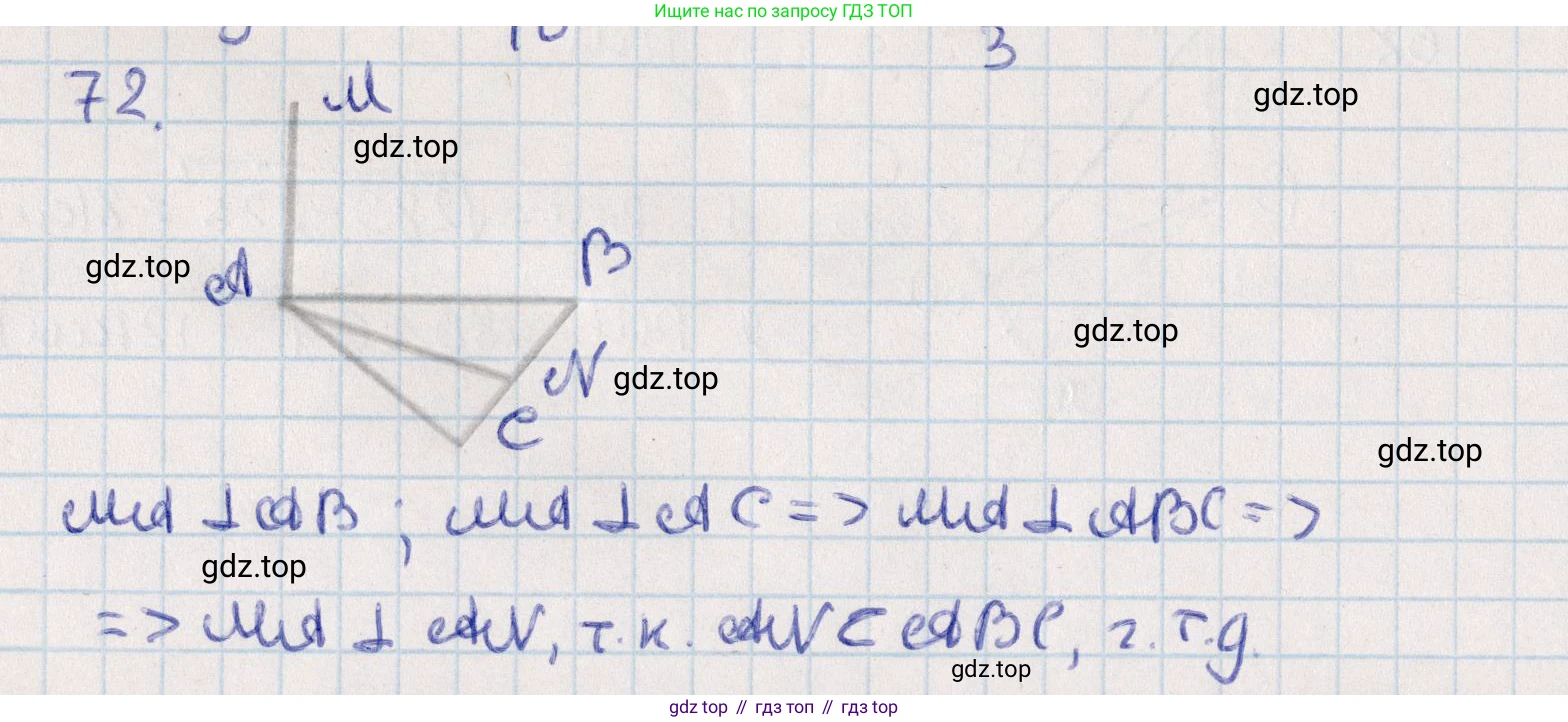 Ищите нас по запросу ГДЗ ТОП
72.
M
gdz.top
gdz.top
B
gdz.top
A
gdz.top
N
gdz.top
C
gdz.top
MA ⊥ AB ; MA ⊥ AC => MA ⊥ ABC =>
gdz.top
=> MA ⊥ AN, т.к. AN ⊂ ABC, ч.т.д.
gdz.top
gdz top // гдз топ // гдз top